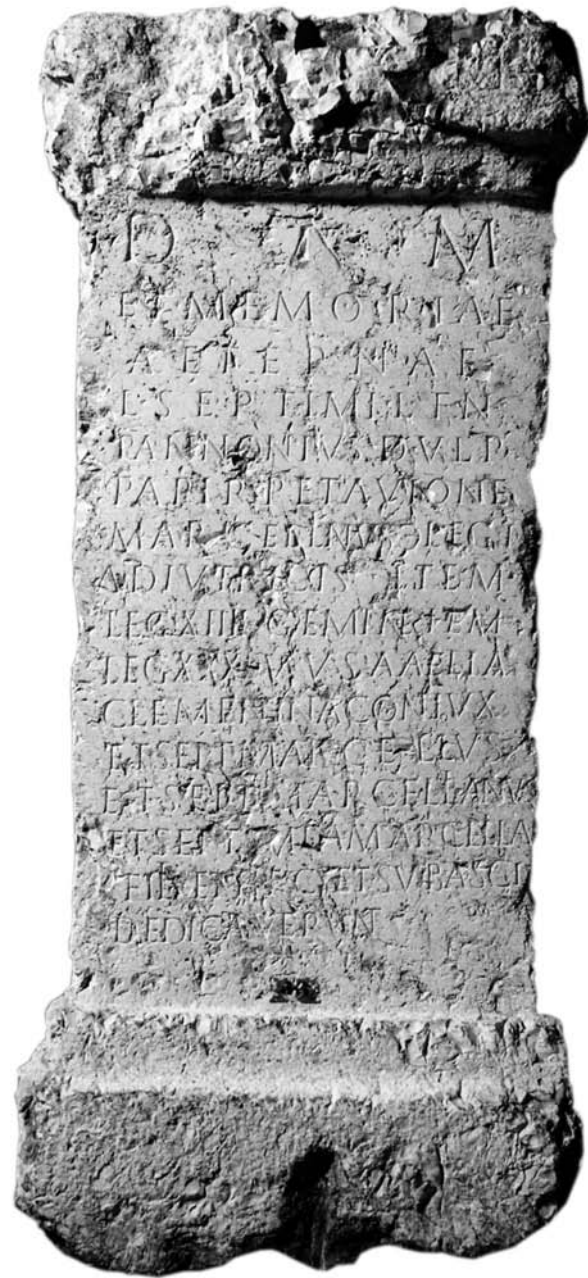 D M
ET MEMORIAE
AETERNAE
L SEPTIMI L F N
PANNONIVS D VLP
PAPIR PETAVIONE
MARCELLINVS Ɔ LEG I
ADIVTRICIS ITEM
LEG XIIII GEMIN ITEM
LEG XXX V V SAAELIA
CLEMENTINA CONIVX
ET SEPT MARCELLVS
ET SEPT MARCELLIANVS
ET SEPTIMIA MARCELLA
FIL ET SVB ASCI
DEDICAVERVNT